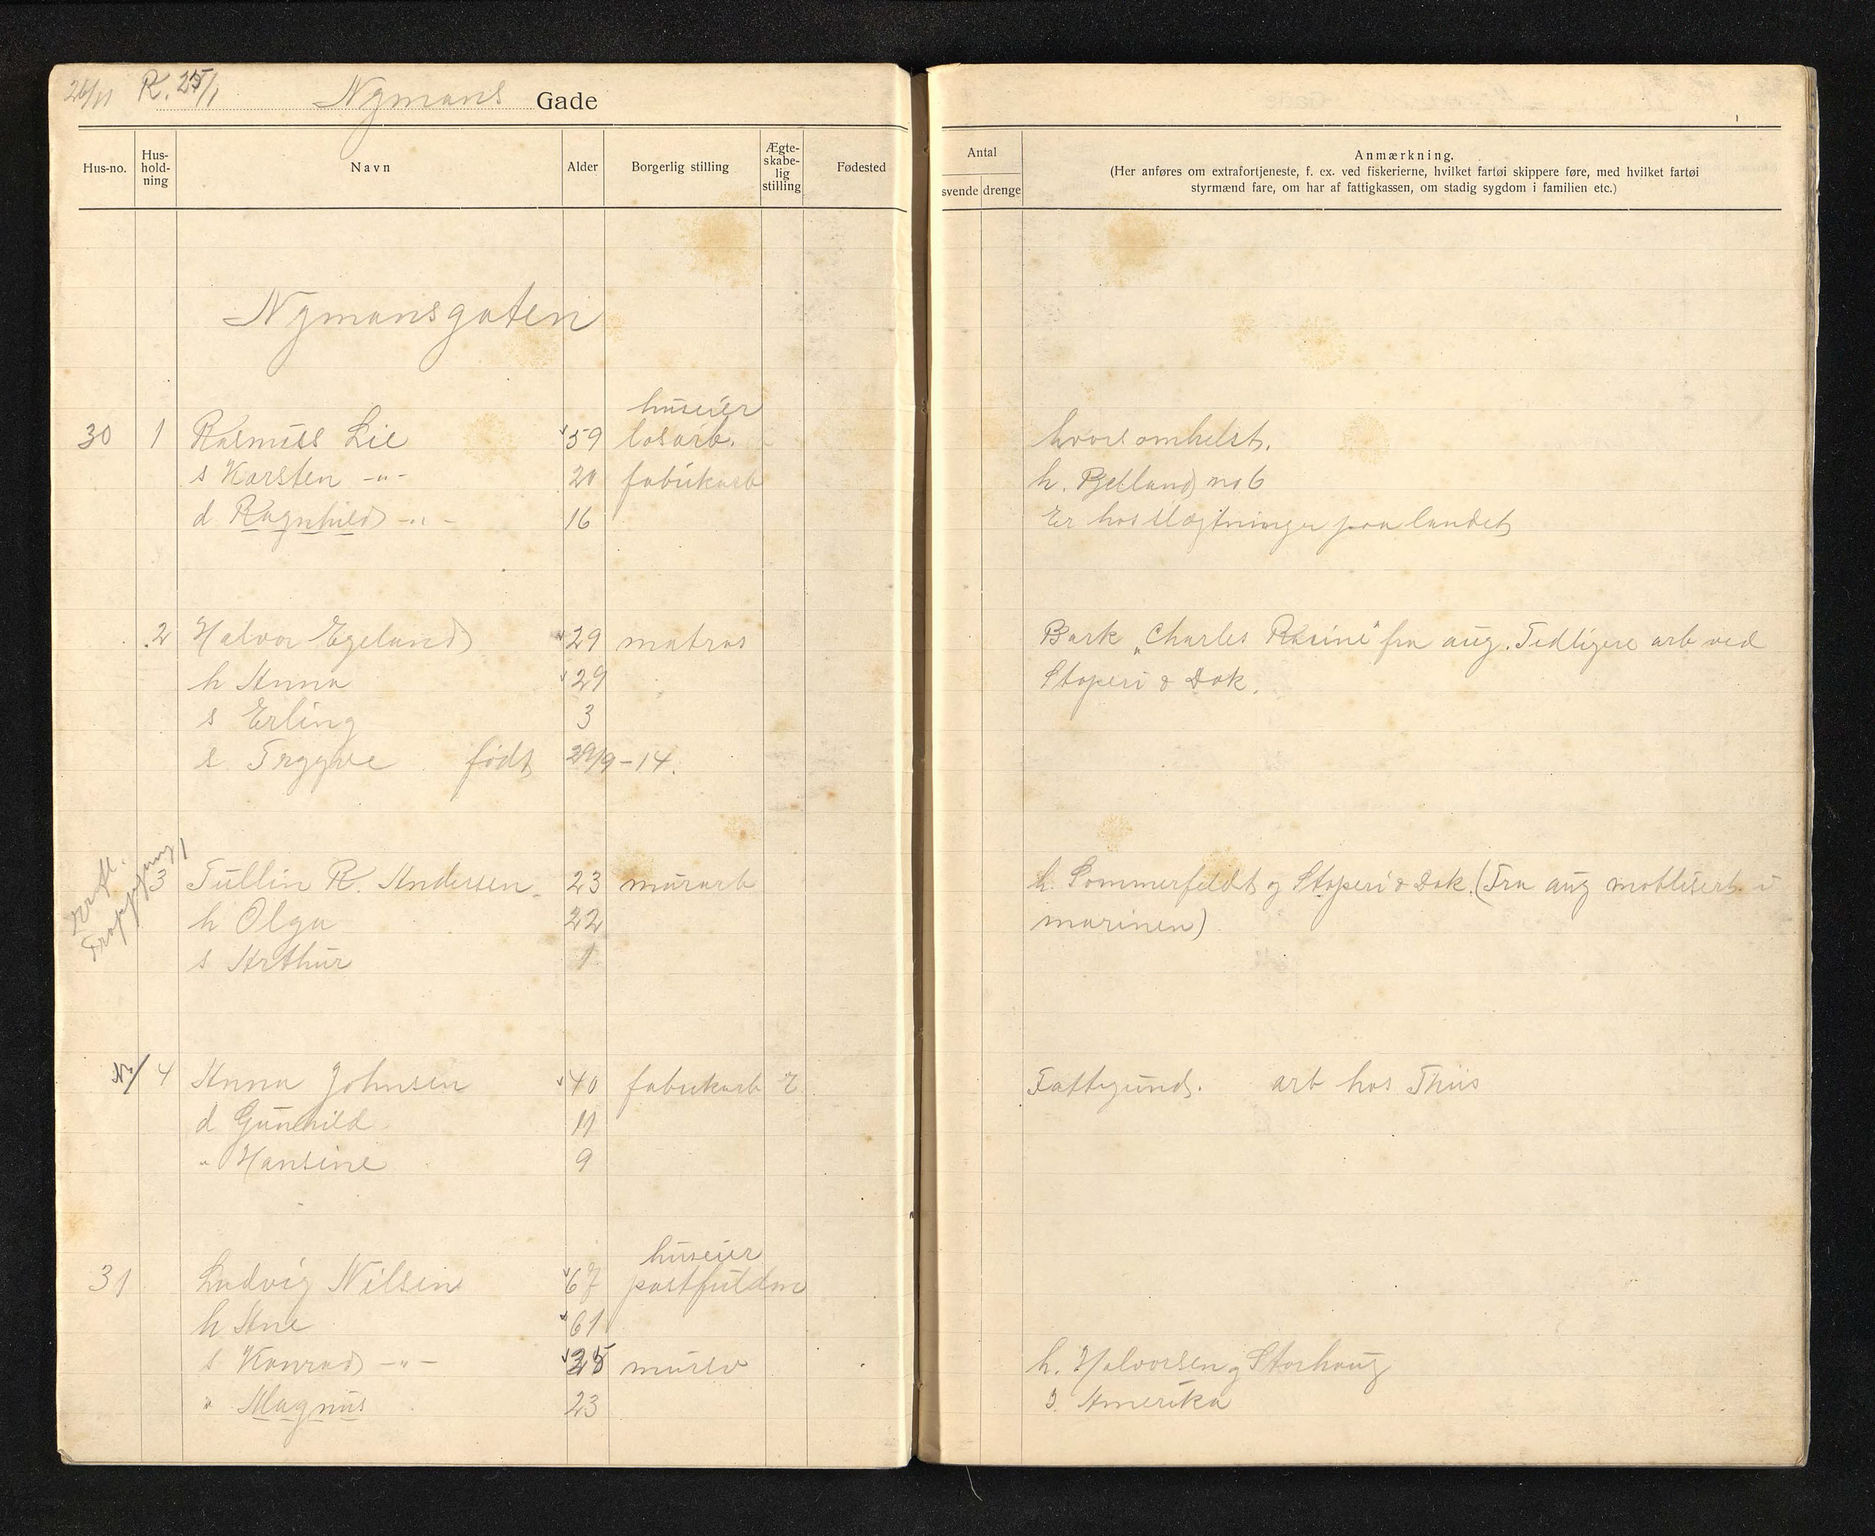 26/11 R. 25/1 Nymans Gade
Hus-no. Hus-hold-ning Navn Alder Borgerlig stilling Ægte-skabe-lig stilling Fødested
Antal
svende drenge
Anmærkning.
(Her anføres om extrafortjeneste, f. ex. ved fiskerierne, hvilket fartøi skippere føre, med hvilket fartøi
styrmænd fare, om har af fattigkassen, om stadig sygdom i familien etc.)
Nymansgaten
huseier
30 1 Rasmus Lie 59 løsarb. hvorsomhelst.
s Karsten -"- 20 fabrikarb h. Bjelland no 6
d Ragnhild -"- 16 Er hos slægtninger paa landet
2 Halvor Egeland 29 matros Bark "Charles Racine" fra aug. Tidligere arb ved
h Anna 29 Støperi & Dok.
s Erling 3
s Trygve født 29/9-14.
3 Tullin R. Andersen 23 murarb h. Sommerfeldt og Støperi & Dok. (Fra aug mobilisert i
h Olga 22 marinen)
s Arthur 1
4 Anna Johnsen 40 fabrikarb E. Fattigund. arb hos Thiis
d Gunhild 11
" Hansine 9
huseier
31 Ludvig Nilsen 67 postfuldm
h Ane 61
s Konrad -"- 25 mursv h. Halvorsen og Storhaug
" Magnus 23 I Amerika